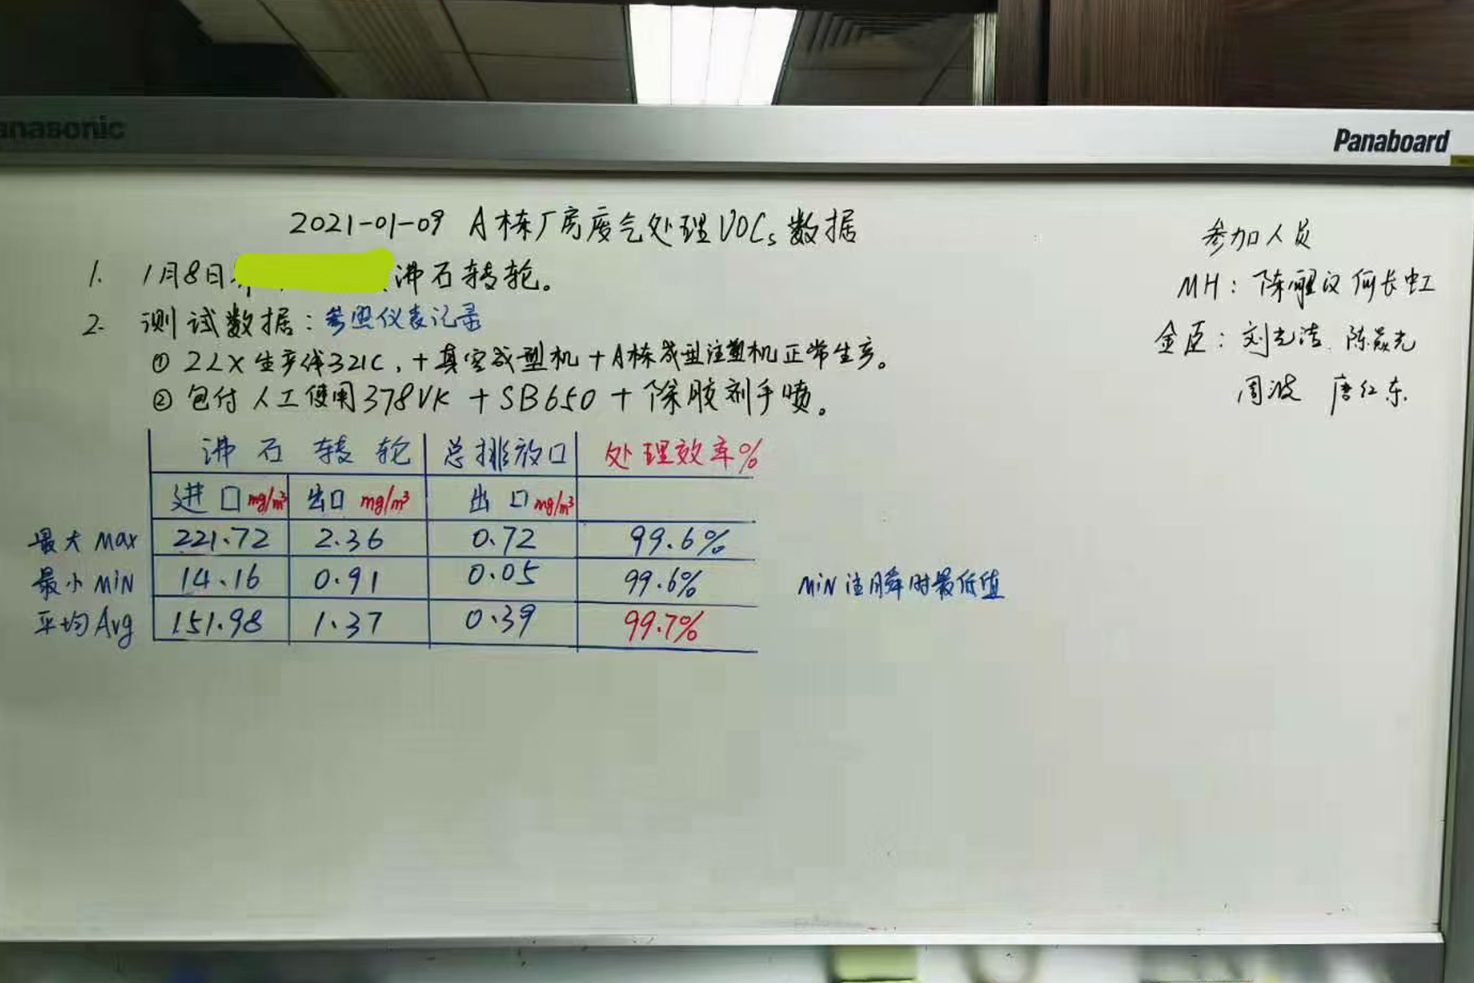 Panasonic
Panaboard
2021-01-09 A栋厂房废气处理VOCs数据
1. 1月8日 沸石转轮。
2. 测试数据:参照仪表记录
① 2LX生产线321C,+真空成型机+A栋成型注塑机正常生产。
② 包付人工使用378VK+SB650+除胶剂手喷。
沸石转轮 总排放口 处理效率%
进口mg/m³ 出口mg/m³ 出口mg/m³
最大 Max 221.72 2.36 0.72 99.6%
最小 MiN 14.16 0.91 0.05 99.6%
平均 Avg 151.98 1.37 0.39 99.7%
MiN 值瞬时最低值
参加人员
MH: 何长虹
金臣: 刘光洁
周波 唐红东